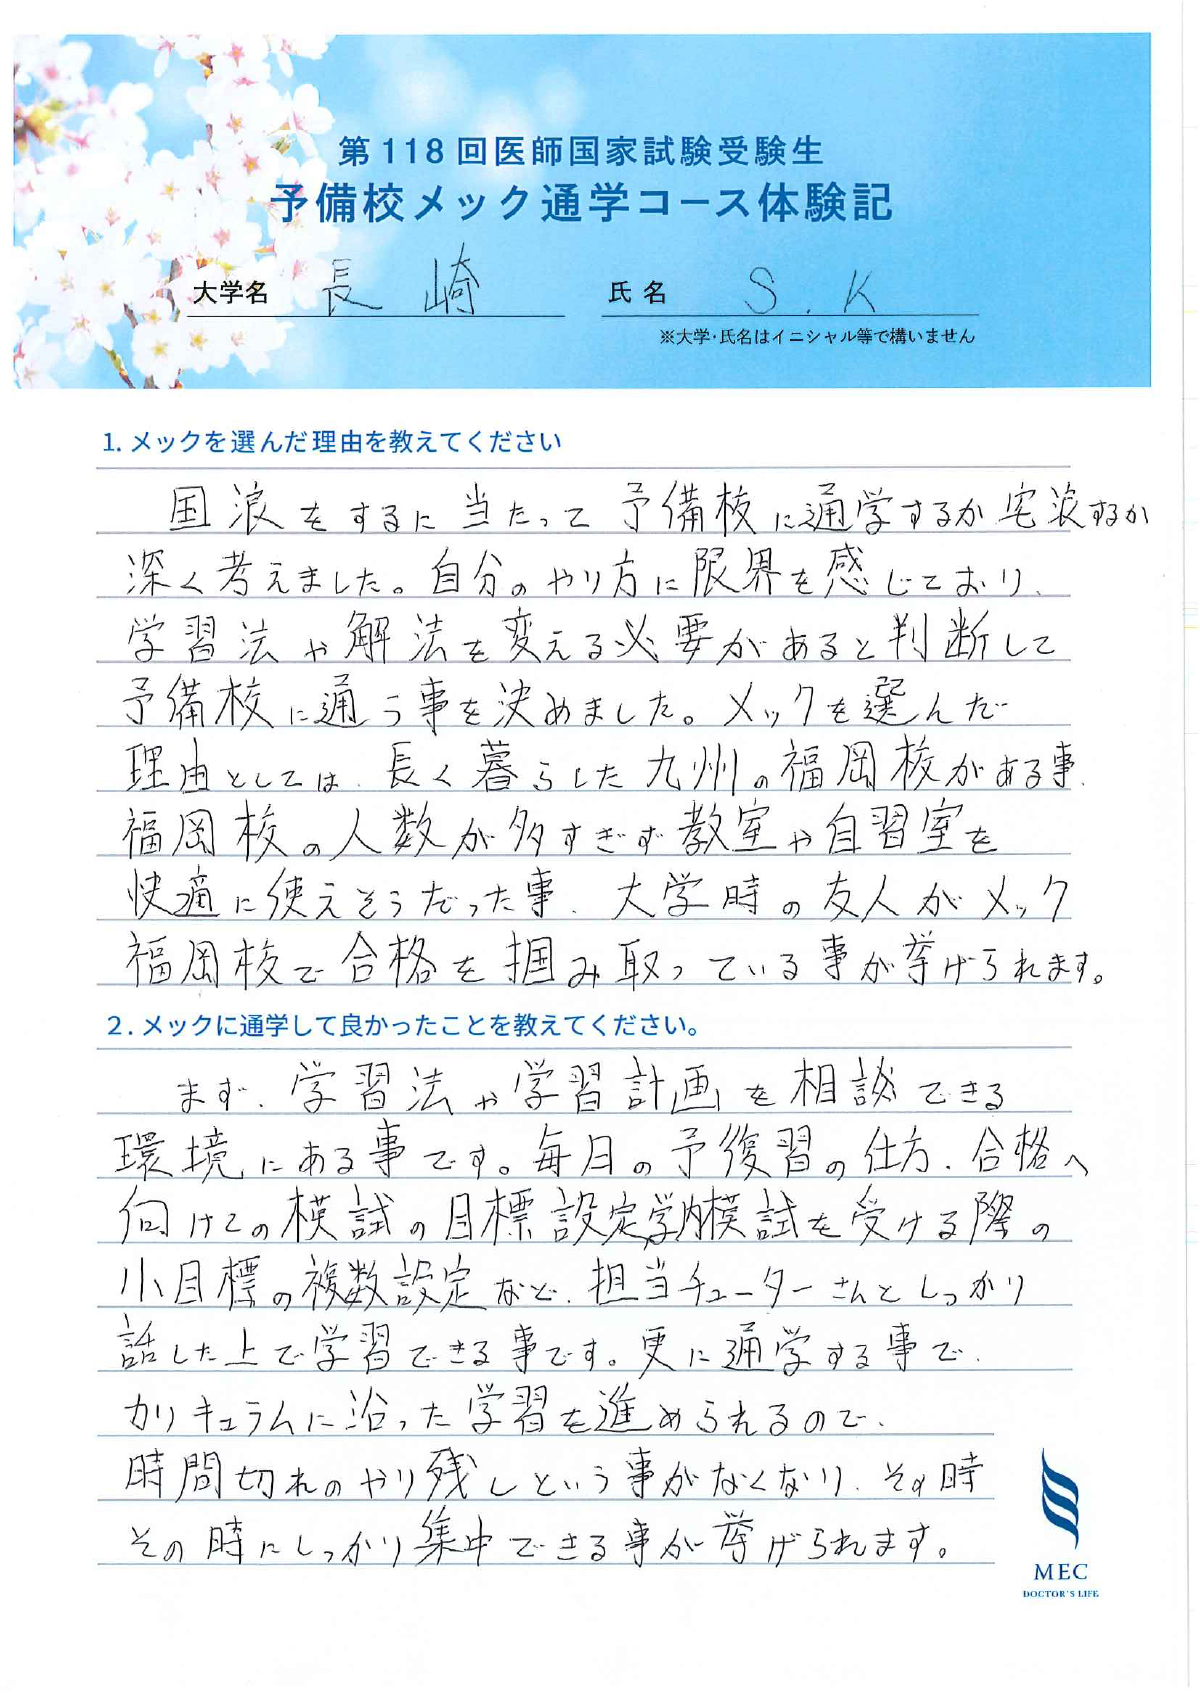 第118回医師国家試験受験生
予備校メック通学コース体験記
大学名 長崎 氏名 S.K
※大学・氏名はイニシャル等で構いません
1. メックを選んだ理由を教えてください
国浪をするに当たって予備校に通学するか宅浪するか
深く考えました。自分のやり方に限界を感じており、
学習法や解法を変える必要があると判断して
予備校に通う事を決めました。メックを選んだ
理由としては、長く暮らした九州の福岡校がある事、
福岡校の人数が多すぎず教室や自習室を
快適に使えそうだった事、大学時の友人がメック
福岡校で合格を掴み取っている事が挙げられます。
2. メックに通学して良かったことを教えてください。
まず、学習法や学習計画を相談できる
環境にある事です。毎日の予復習の仕方、合格へ
向けての模試の目標設定、学内模試を受ける際の
小目標の複数設定など、担当チューターさんとしっかり
話した上で学習できる事です。更に通学する事で、
カリキュラムに沿った学習を進められるので、
時間切れのやり残しという事がなくなり、その時
その時にしっかり集中できる事が挙げられます。
MEC
DOCTOR'S LIFE